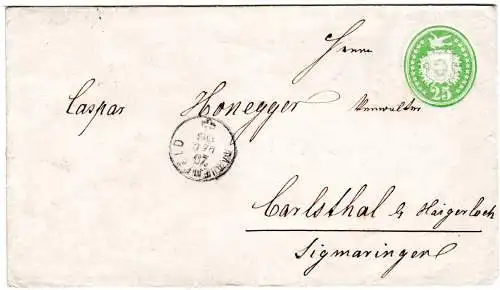 Herrn
25
Caspar Honegger Verwalter
Carlsthal b Haigerloch
Sigmaringen